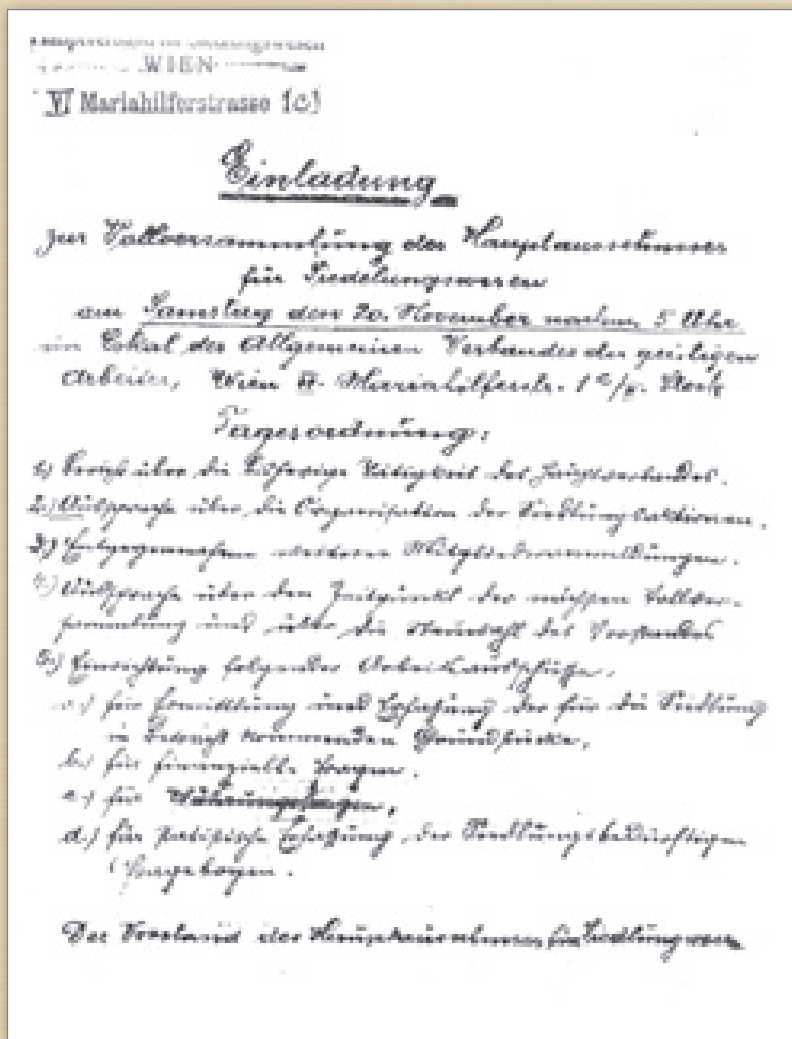 WIEN
VI Mariahilferstrasse 101
Einladung
zur Vollversammlung des Hauptausschusses
für Siedelungswesen
am Samstag den 20. November nachm. 5 Uhr
im Lokal des Allgemeinen Verbandes der geistigen
Arbeiter, Wien Mariahilferstr. Stock
Tagesordnung:
1.) Bericht über die bisherige Tätigkeit des Hauptverbandes.
2.) Aussprache über die Organisation der Siedlungsaktionen.
3.) Entgegennahme weiterer Mitgliederanmeldungen.
4.) Aussprache über den Zeitpunkt der nächsten Vollver-
sammlung und über die Neuwahl des Vorstandes
5.) Einrichtung folgender Arbeitsausschüsse:
a.) für Ermittlung und Erfassung der für die Siedlung
in Betracht kommenden Grundstücke,
b.) für finanzielle Fragen.
c.) für
d.) für statistische Erfassung der Siedlungsbedürftigen
(Fragebogen.
Der Vorstand des für Siedlungswesen